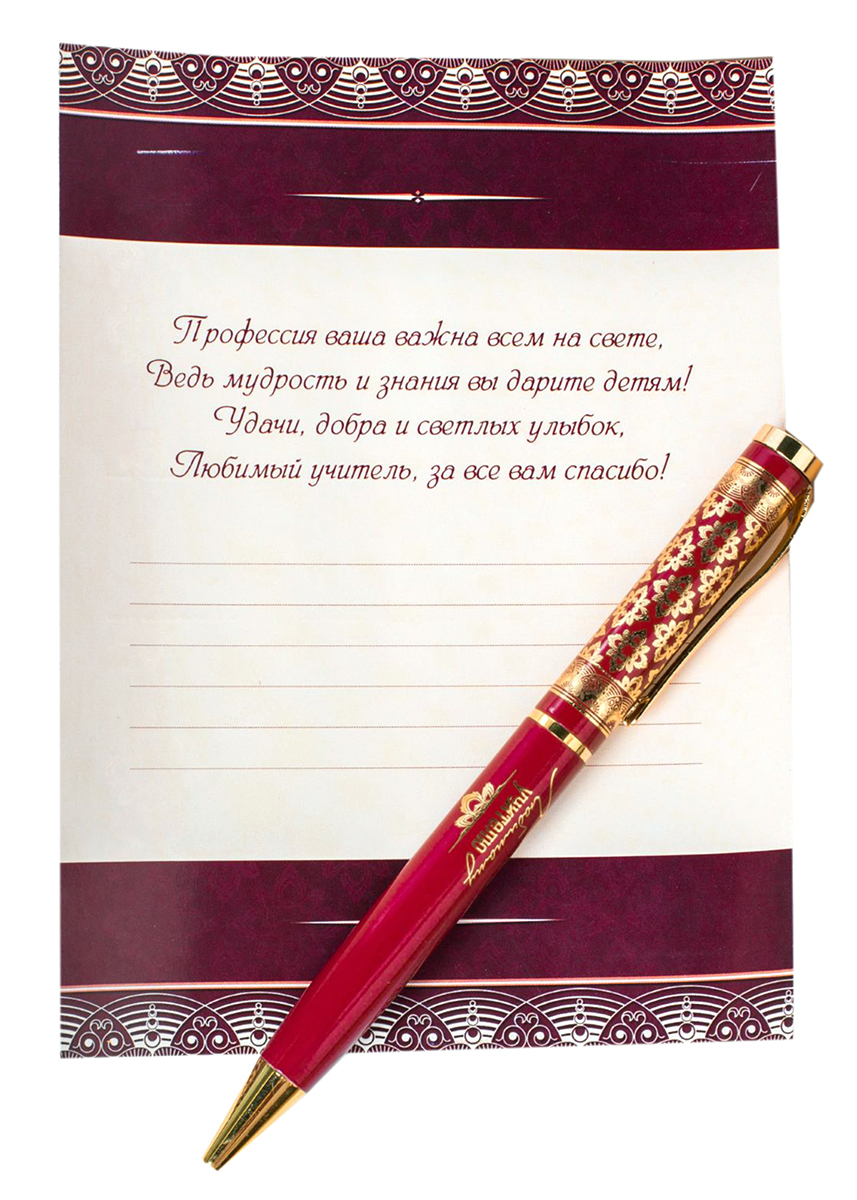 Профессия ваша важна всем на свете,
Ведь мудрость и знания вы дарите детям!
Удачи, добра и светлых улыбок,
Любимый учитель, за все вам спасибо!
Любимому
учителю